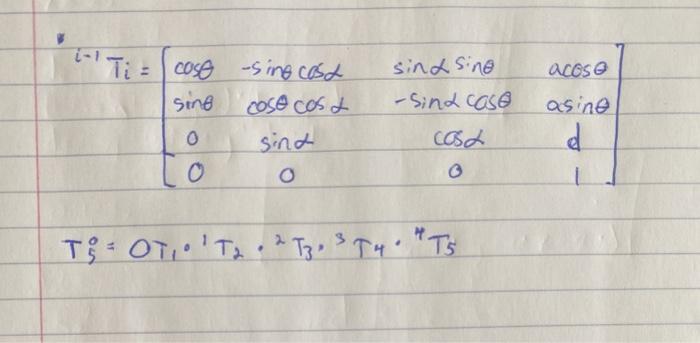 i-1Ti = [ cosθ -sinθ cosα sinα sinθ acosθ ]
sinθ cosθ cosα -sinα cosθ asinθ
0 sinα cosα d
0 0 0 1
T⁰₅ = 0T₁ • ¹T₂ • ²T₃ • ³T₄ • ⁴T₅